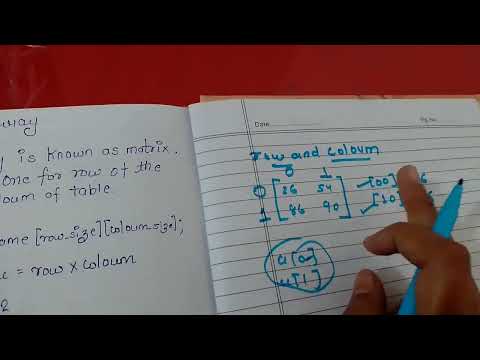 is known as matrix.
One for row of the
oloum of table
ame [row_size][coloum_size];
= row x coloum
2
Date
row and coloum
0 1
0 26 54 [00] 6
1 86 90 [10]
a[0]
a[1]